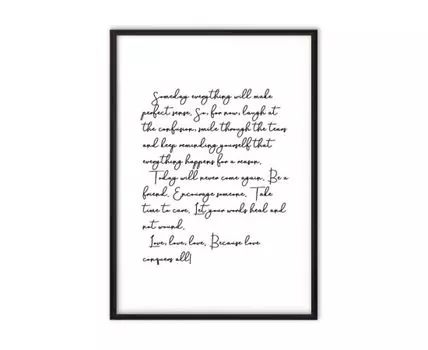 Someday everything will make
perfect sense. So, for now, laugh at
the confusion, smile through the tears
and keep reminding yourself that
everything happens for a reason.
Today will never come again. Be a
friend. Encourage someone. Take
time to care. Let your words heal and
not wound.
Love, love, love. Because love
conquers all!